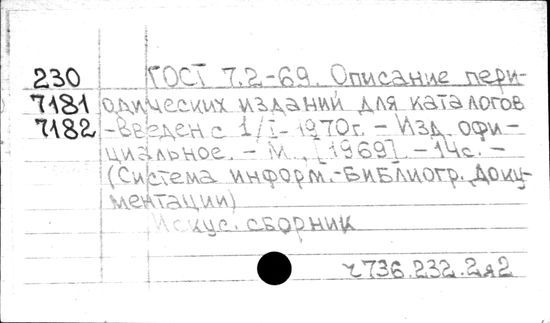 230 ГОСТ 7.2-69. Описание пери-
7181 одических изданий для каталогов
7182 -Введен с 1/I-1970г. - Изд. офи-
циальное. - М., [1969]. - 14с. -
(Система информ.-библиогр. доку-
ментации)
Искус. сборник
ч736.232.2я2